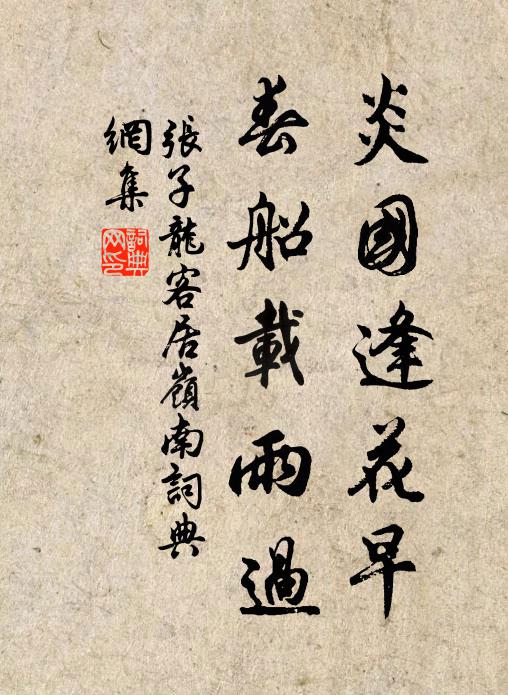 炎國逢花早
春船載雨過
張子龍客居嶺南詞典
網集
詞典
网印